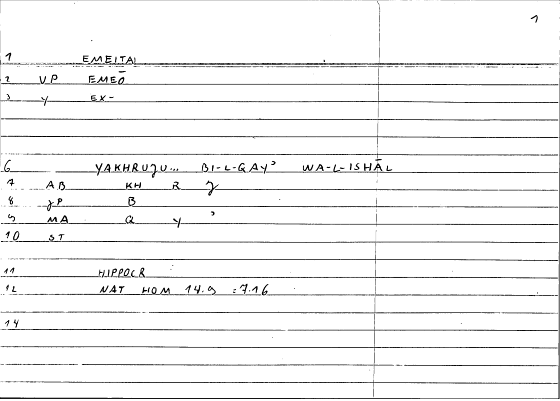 1
1 EMEITAI
2 VP EMEŌ
3 Y EX-
6 YAKHRUJU... BI-L-QAY' WA-L-ISHĀL
7 AB KH R J
8 JP B
9 MA Q Y '
10 ST
11 HIPPOCR
12 NAT HOM 14.9 :7.16
14